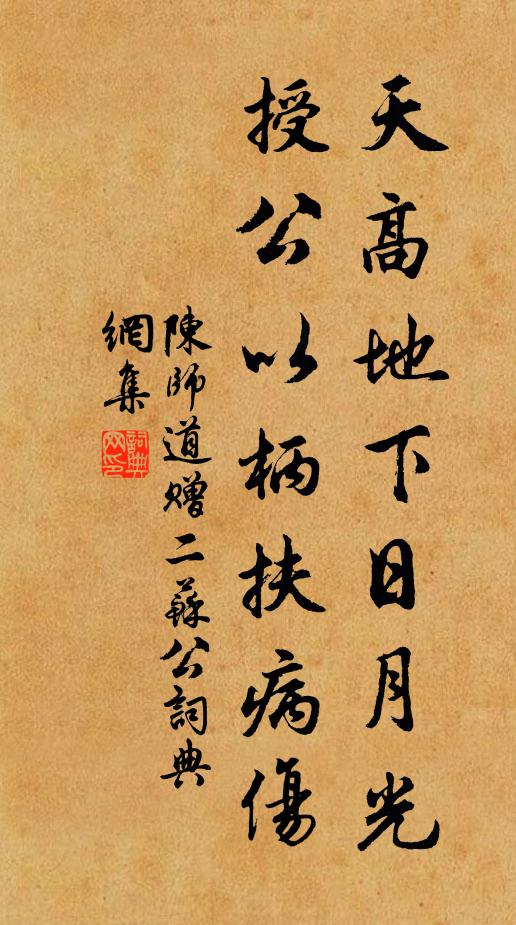 天高地下日月光
授公以柄扶病傷
陳師道贈二蘇公詞典
網集
詞典網印